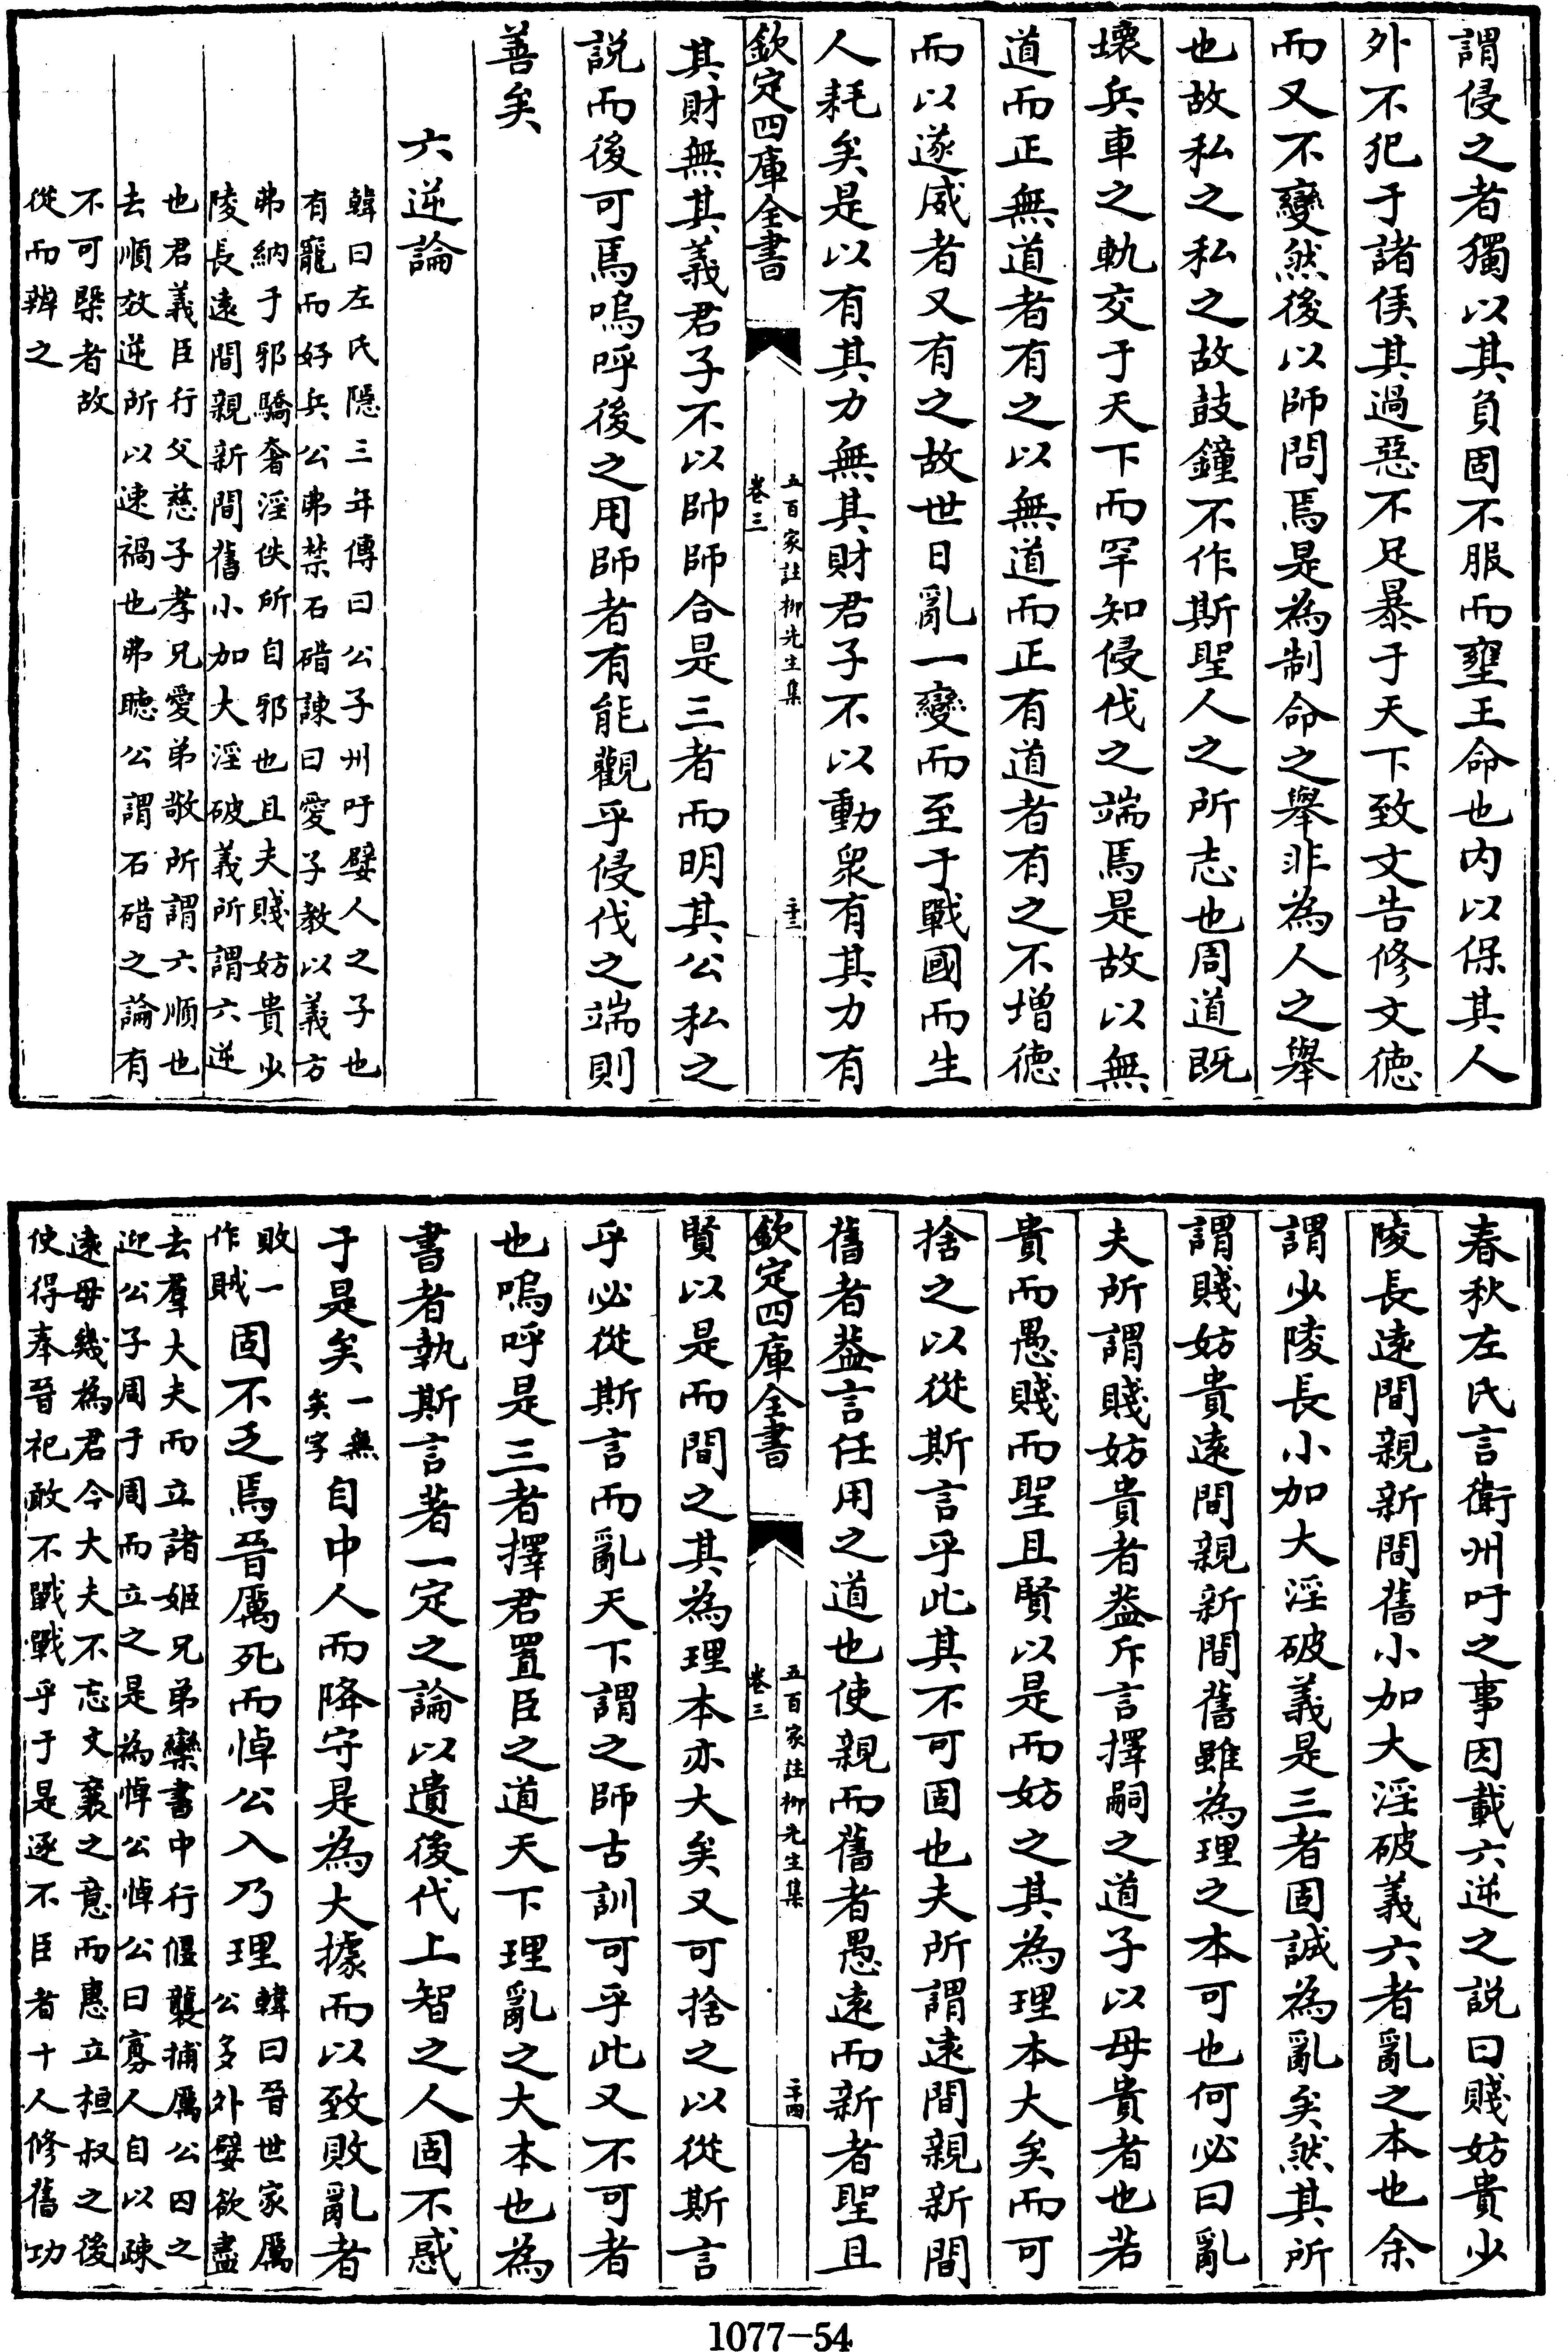 謂侵之者獨以其負固不服而壅王命也内以保其人
外不犯于諸侯其過惡不足暴于天下致文告修文德
而又不變然後以師問焉是為制命之舉非為人之舉
也故私之私之故鼓鐘不作斯聖人之所志也周道既
壞兵車之軌交于天下而罕知侵伐之端焉是故以無
道而正無道者有之以無道而正有道者有之不增德
而以遂威者又有之故世日亂一變而至于戰國而生
人耗矣是以有其力無其財君子不以動衆有其力有
欽定四庫全書
五百家註柳先生集
卷三
二十三
其財無其義君子不以帥師合是三者而明其公私之
説而後可焉嗚呼後之用師者有能觀乎侵伐之端則
善矣
六逆論
韓曰左氏隱三年傳曰公子州吁嬖人之子也
有寵而好兵公弗禁石碏諫曰愛子教以義方
弗納于邪驕奢淫佚所自邪也且夫賤妨貴少
陵長遠間親新間舊小加大淫破義所謂六逆
也君義臣行父慈子孝兄愛弟敬所謂六順也
去順效逆所以速禍也弗聽公謂石碏之論有
不可槩者故
從而辨之
春秋左氏言衛州吁之事因載六逆之説曰賤妨貴少
陵長遠間親新間舊小加大淫破義六者亂之本也余
謂少陵長小加大淫破義是三者固誠為亂矣然其所
謂賤妨貴遠間親新間舊雖為理之本可也何必曰亂
夫所謂賤妨貴者葢斥言擇嗣之道子以母貴者也若
貴而愚賤而聖且賢以是而妨之其為理本大矣而可
捨之以從斯言乎此其不可固也夫所謂遠間親新間
舊者葢言任用之道也使親而舊者愚遠而新者聖且
欽定四庫全書
五百家註柳先生集
卷三
二十四
賢以是而間之其為理本亦大矣又可捨之以從斯言
乎必從斯言而亂天下謂之師古訓可乎此又不可者
也嗚呼是三者擇君置臣之道天下理亂之大本也為
書者執斯言著一定之論以遺後代上智之人固不惑
于是矣一無矣字自中人而降守是為大據而以致敗亂者
敗一作賊固不乏焉晉厲死而悼公入乃理韓曰晉世家厲公多外嬖欲盡
去羣大夫而立諸姬兄弟欒書中行偃襲捕厲公因之
迎公子周于周而立之是為悼公悼公曰寡人自以疎
遠毋幾為君今大夫不忘文襄之意而惠立桓叔之後
使得奉晉祀敢不戰戰乎于是逐不臣者十人修舊功
1077-54